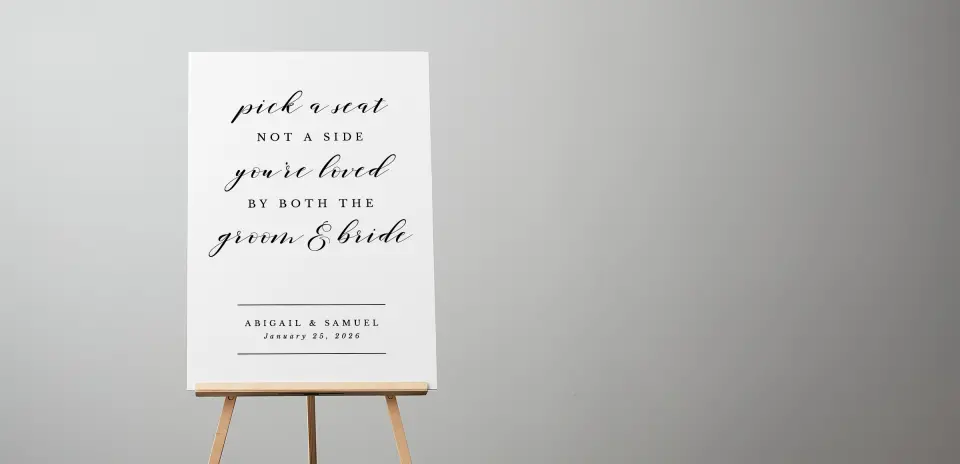 pick a seat
NOT A SIDE
you're loved
BY BOTH THE
groom & bride
ABIGAIL & SAMUEL
January 25, 2026